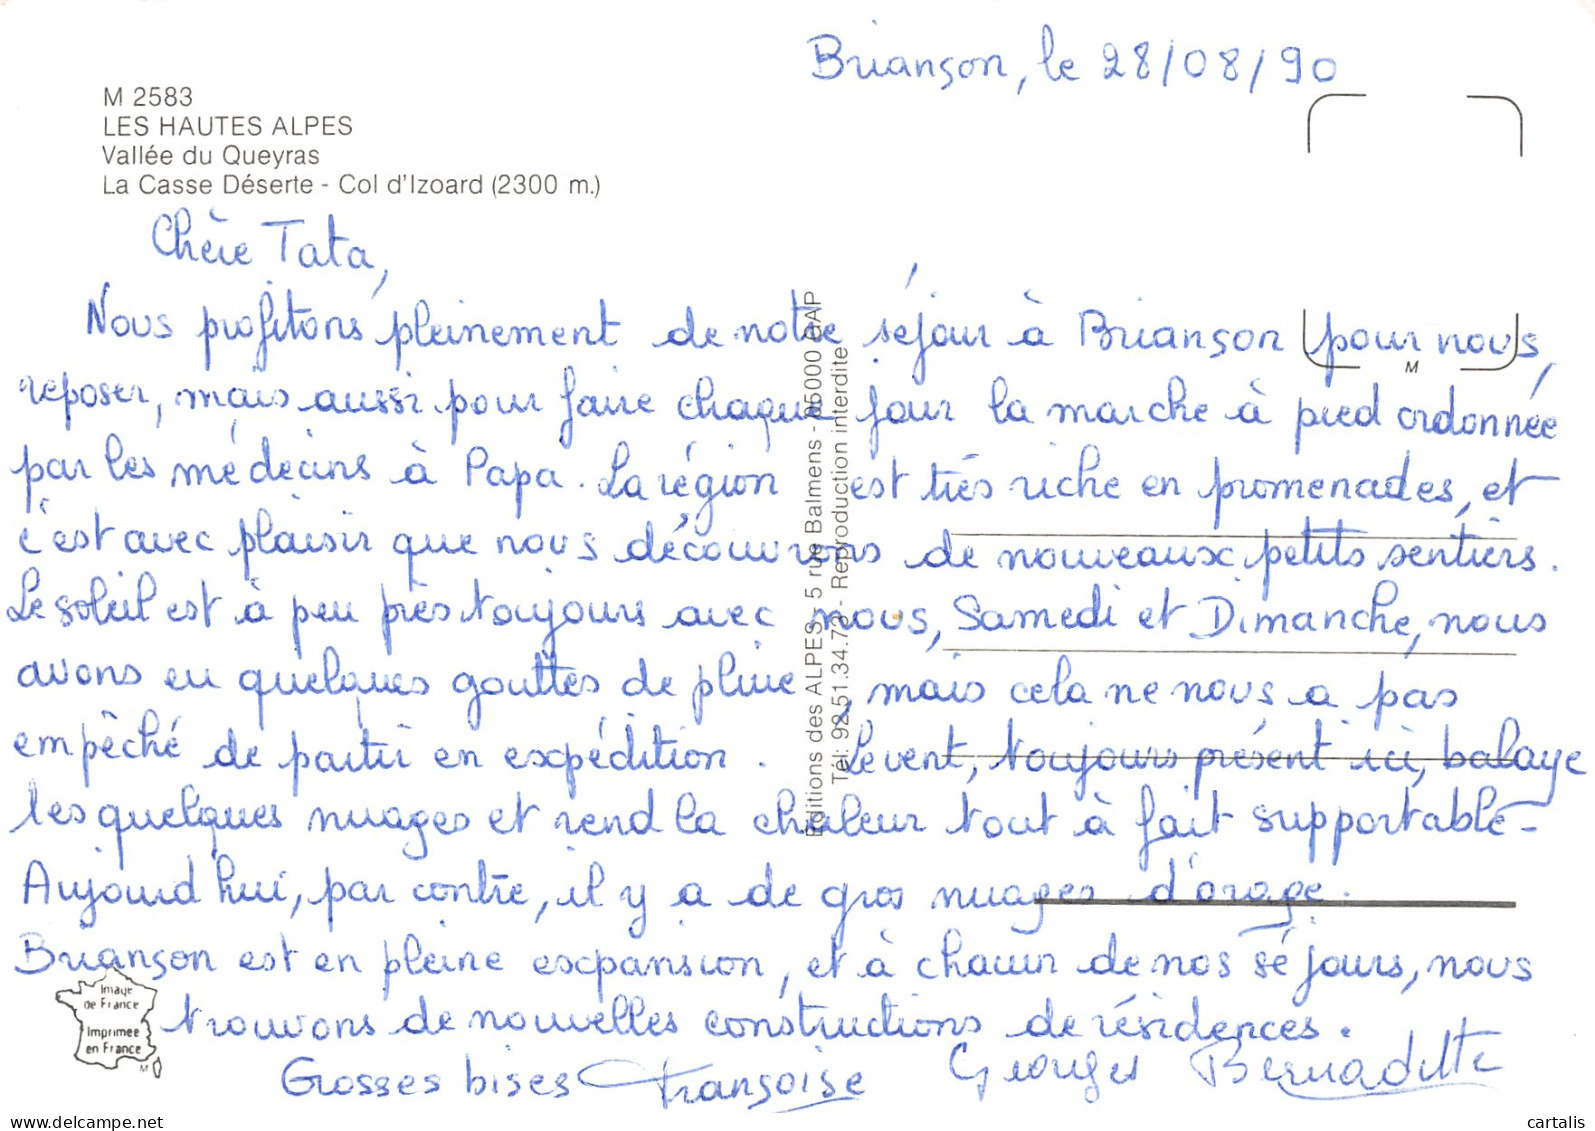 Briançon, le 28/08/90
M 2583
LES HAUTES ALPES
Vallée du Queyras
La Casse Déserte - Col d'Izoard (2300 m.)
Chère Tata,
Nous profitons pleinement de notre séjour à Briançon pour nous
reposer, mais aussi pour faire chaque jour la marche à pied ordonnée
par les médecins à Papa. La région est très riche en promenades, et
c'est avec plaisir que nous découvrons de nouveaux petits sentiers.
Le soleil est à peu près toujours avec nous, Samedi et Dimanche, nous
avons eu quelques gouttes de pluie, mais cela ne nous a pas
empêché de partir en expédition. Le vent, toujours présent ici, balaye
les quelques nuages et rend la chaleur tout à fait supportable-
Aujourd'hui, par contre, il y a de gros nuages d'orage.
Briançon est en pleine expansion, et à chacun de nos séjours, nous
trouvons de nouvelles constructions de résidences.
Grosses bises Françoise Georges Bernadette
M
Editions des ALPES - 5 rue Balmens - 05000 GAP
Tél: 92.51.34.73 - Reproduction interdite
Image
de France
Imprimée
en France
M
www.delcampe.net
cartalis